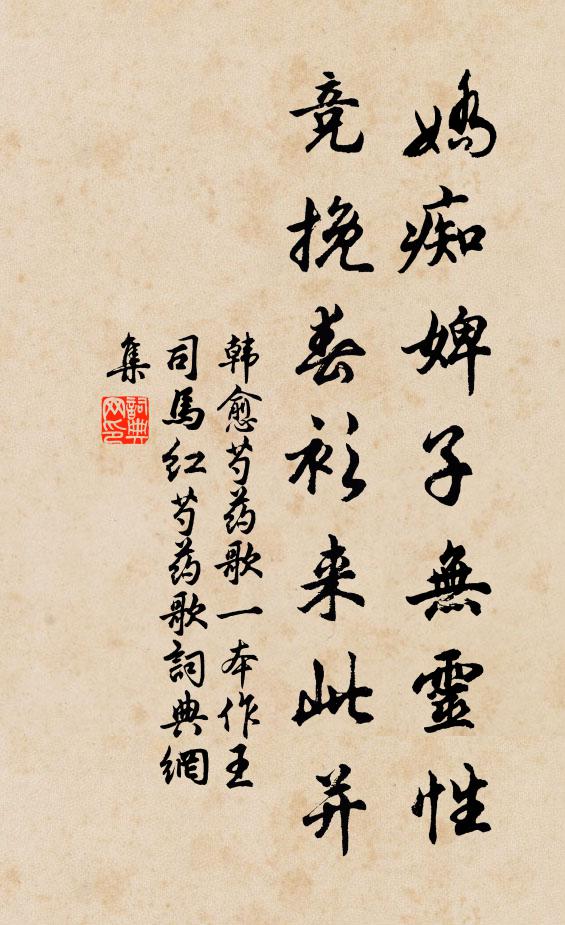 嬌痴婢子無靈性
竞挽春衫来此并
韩愈芍药歌一本作王
司馬红芍药歌詞典網
集
詞典
网印